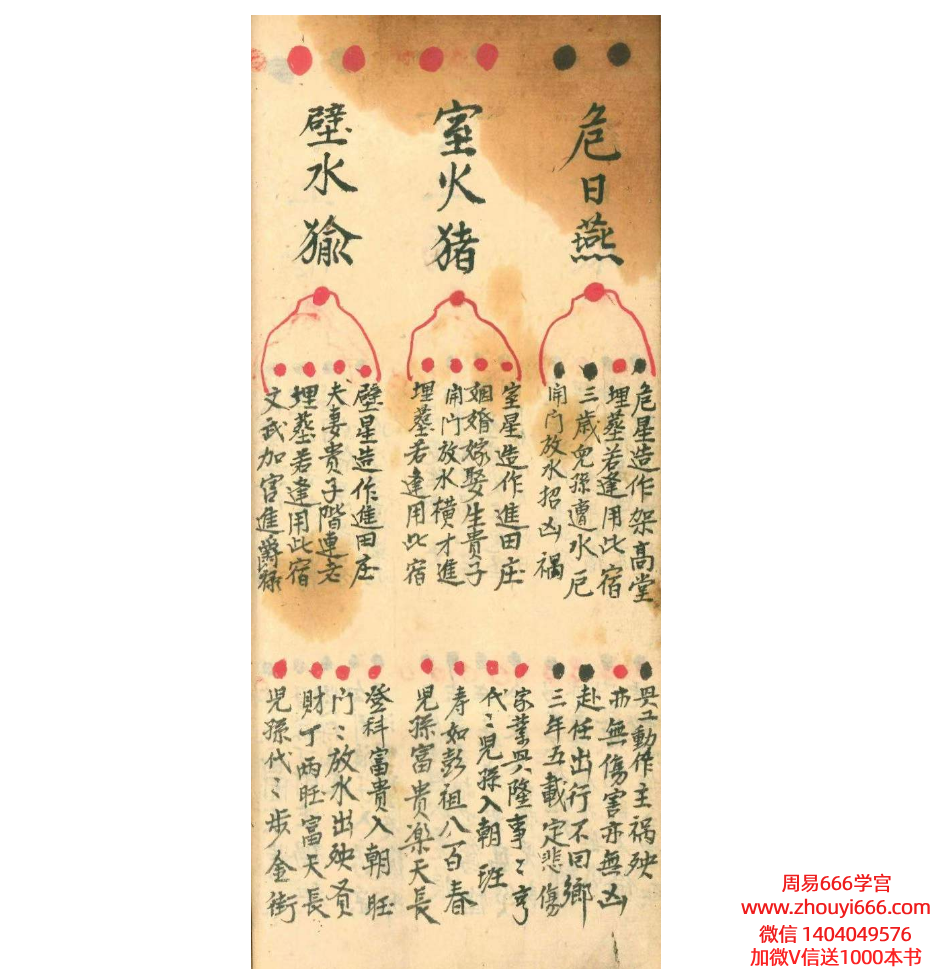 危日燕
危星造作架高堂
埋葬若逢用此宿
三歲兒孫遭水厄
開门放水招凶禍
興工動作主祸殃
亦無傷害亦無凶
赴任出行不回鄉
三年五載定悲傷
室火猪
室星造作進田庄
姻婚嫁娶生貴子
開门放水横才進
埋葬若逢用此宿
家業興隆事〻亨
代〻兒孫入朝班
寿如彭祖八百春
児孫富貴楽天長
壁水㺄
壁星造作進田庄
夫妻貴子階連老
埋葬若逢用此宿
文武加官進爵禄
登科富貴入朝旺
门〻放水出殃
財丁两旺富天長
児孫代〻步金街
周易666学宫
www.zhouyi666.com
微信 1404049576
加微V信送1000本书